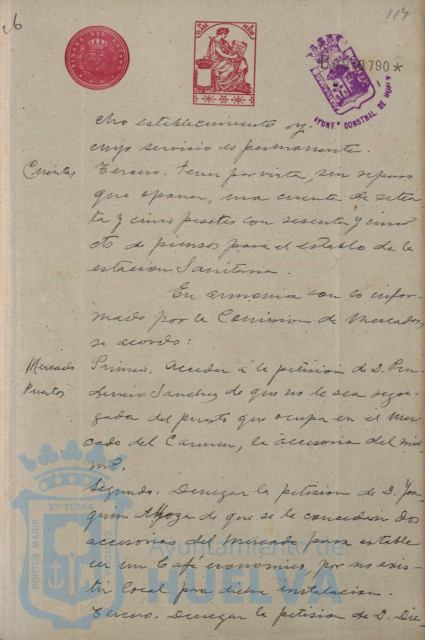 26
114
790*
AYUNT.º CONSTNAL DE
cho establecimiento y
cuyo servicio es permanente.
Cuentas
Tercero. Tener por vista, sin reparos
que oponer, una cuenta de seten
ta y cinco pesetas con sesenta y cinco
cts de piensos para el establo de la
estacion Sanitaria.
En armonia con lo infor-
mado por la Comision de Mercados,
se acordó:
Mercado
Puestos
Primero. Acceder á la peticion de D. Pru-
dencio Sanchez de que no le sea segre-
gada del puesto que ocupa en el Mer-
cado del Carmen, la accesoria del mis-
mo.
Segundo. Denegar la peticion de D. Joa-
quin de que se le concedan dos
accesorias del Mercado para estable
cer un Café economico, por no exis-
tir local para dicha instalacion.
Tercero. Denegar la peticion de D. Die
PORTUS MARIS
ET TERRÆ
Ayuntamiento de
HUELVA